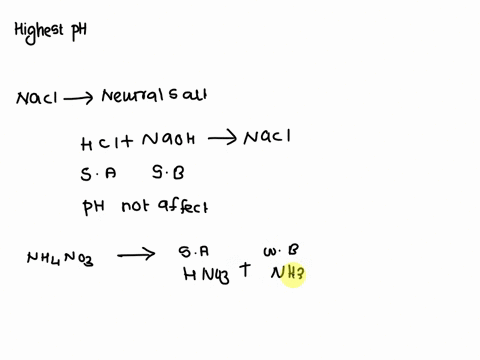 Highest pH
NaCl → Neutral Salt
HCl + NaOH → NaCl
S.A S.B
pH not affect
S.A W.B
NH4NO3 → HNO3 + NH3